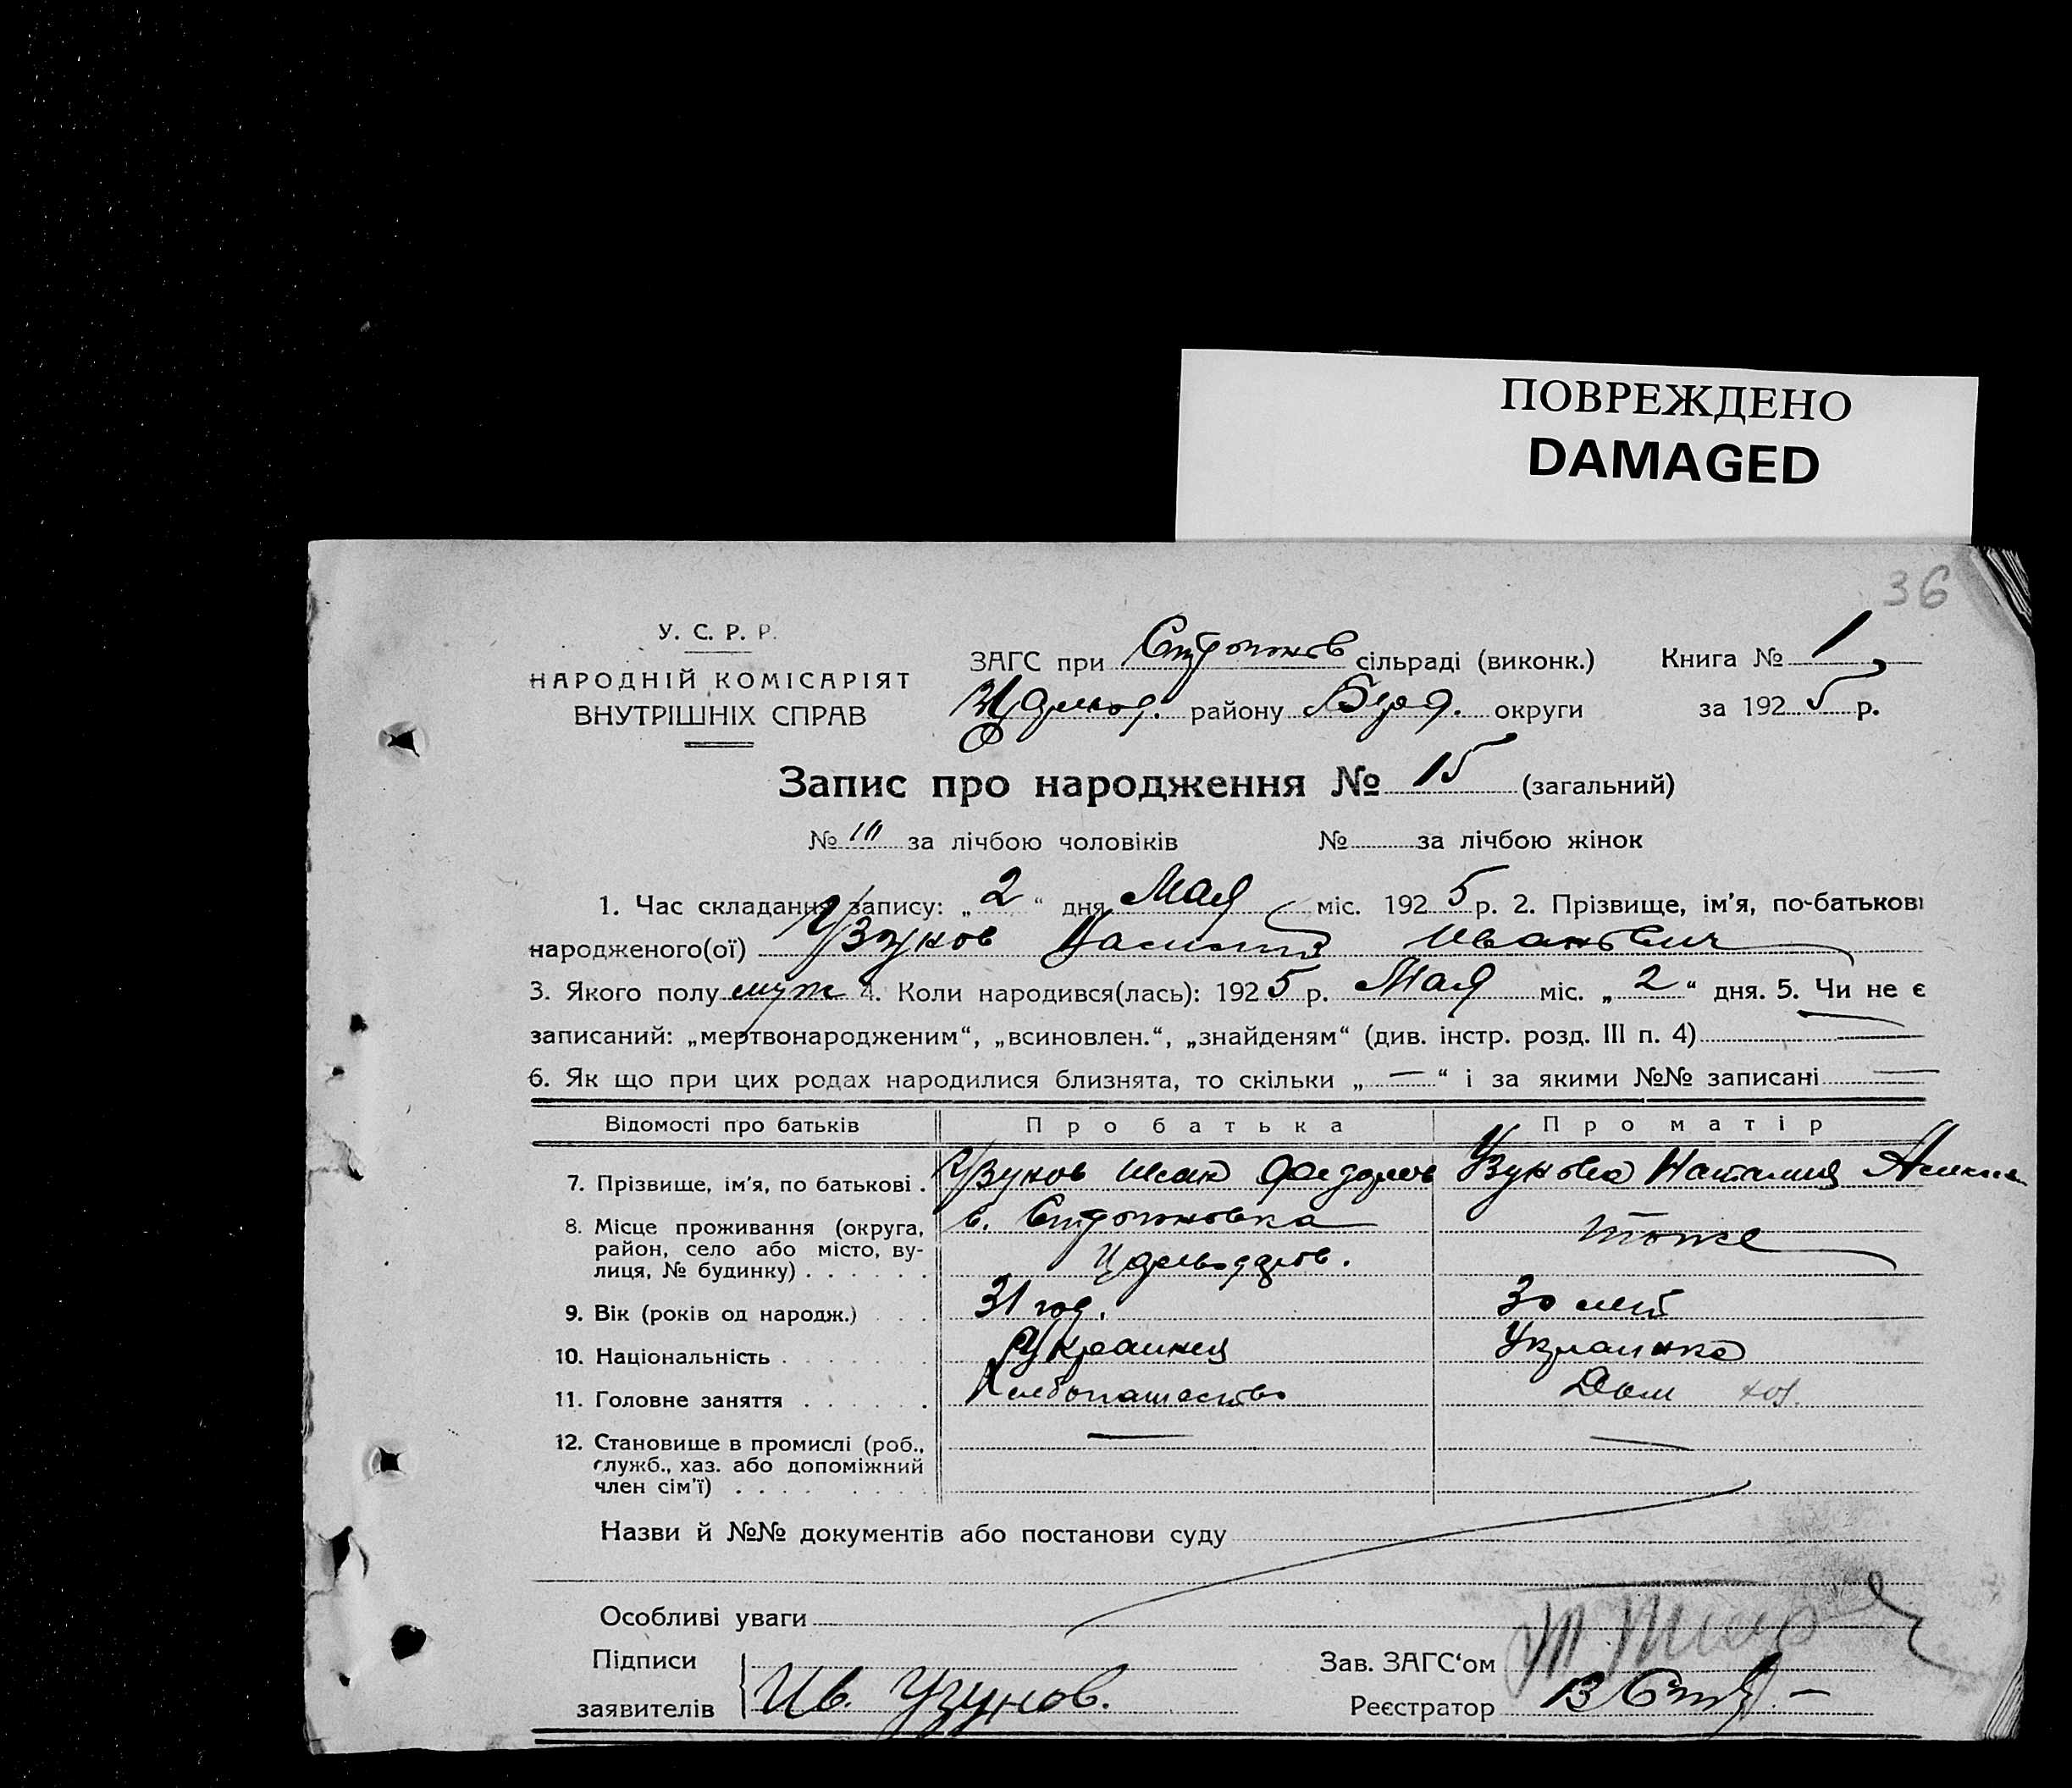 ПОВРЕЖДЕНО
DAMAGED
36
У. С. Р. Р.
НАРОДНІЙ КОМІСАРІЯТ
ВНУТРІШНІХ СПРАВ
ЗАГС при сільраді (виконк.) Книга № 1
району округи за 1925 р.
Запис про народження № 15 (загальний)
№ за лічбою чоловіків № за лічбою жінок
1. Час складання запису: „2“ дня Мая міс. 1925 р. 2. Прізвище, ім'я, по-батькові
народженого(ої) Узунов Иванович
3. Якого полу муж 4. Коли народився(лась): 1925 р. Мая міс. „2“ дня. 5. Чи не є
записаний: „мертвонародженим“, „всиновлен.“, „знайденям“ (див. інстр. розд. III п. 4)
6. Як що при цих родах народилися близнята, то скільки „—“ і за якими №№ записані —
Відомості про батьків Про батька Про матір
7. Прізвище, ім'я, по батькові . Узунов Узунова Наталия
8. Місце проживання (округа, с. тоже
район, село або місто, ву-
лиця, № будинку) . . . . . .
9. Вік (років од народж.) . . . 31 год. 30 лет
10. Національність . . . . . . Украинец Украинка
11. Головне заняття . . . . . . Хлебопашество Дом хоз.
12. Становище в промислі (роб., — —
служб., хаз. або допоміжний
член сім'ї) . . . . . . . .
Назви й №№ документів або постанови суду
Особливі уваги
Підписи Зав. ЗАГС'ом
заявителів Ив. Узунов. Реєстратор